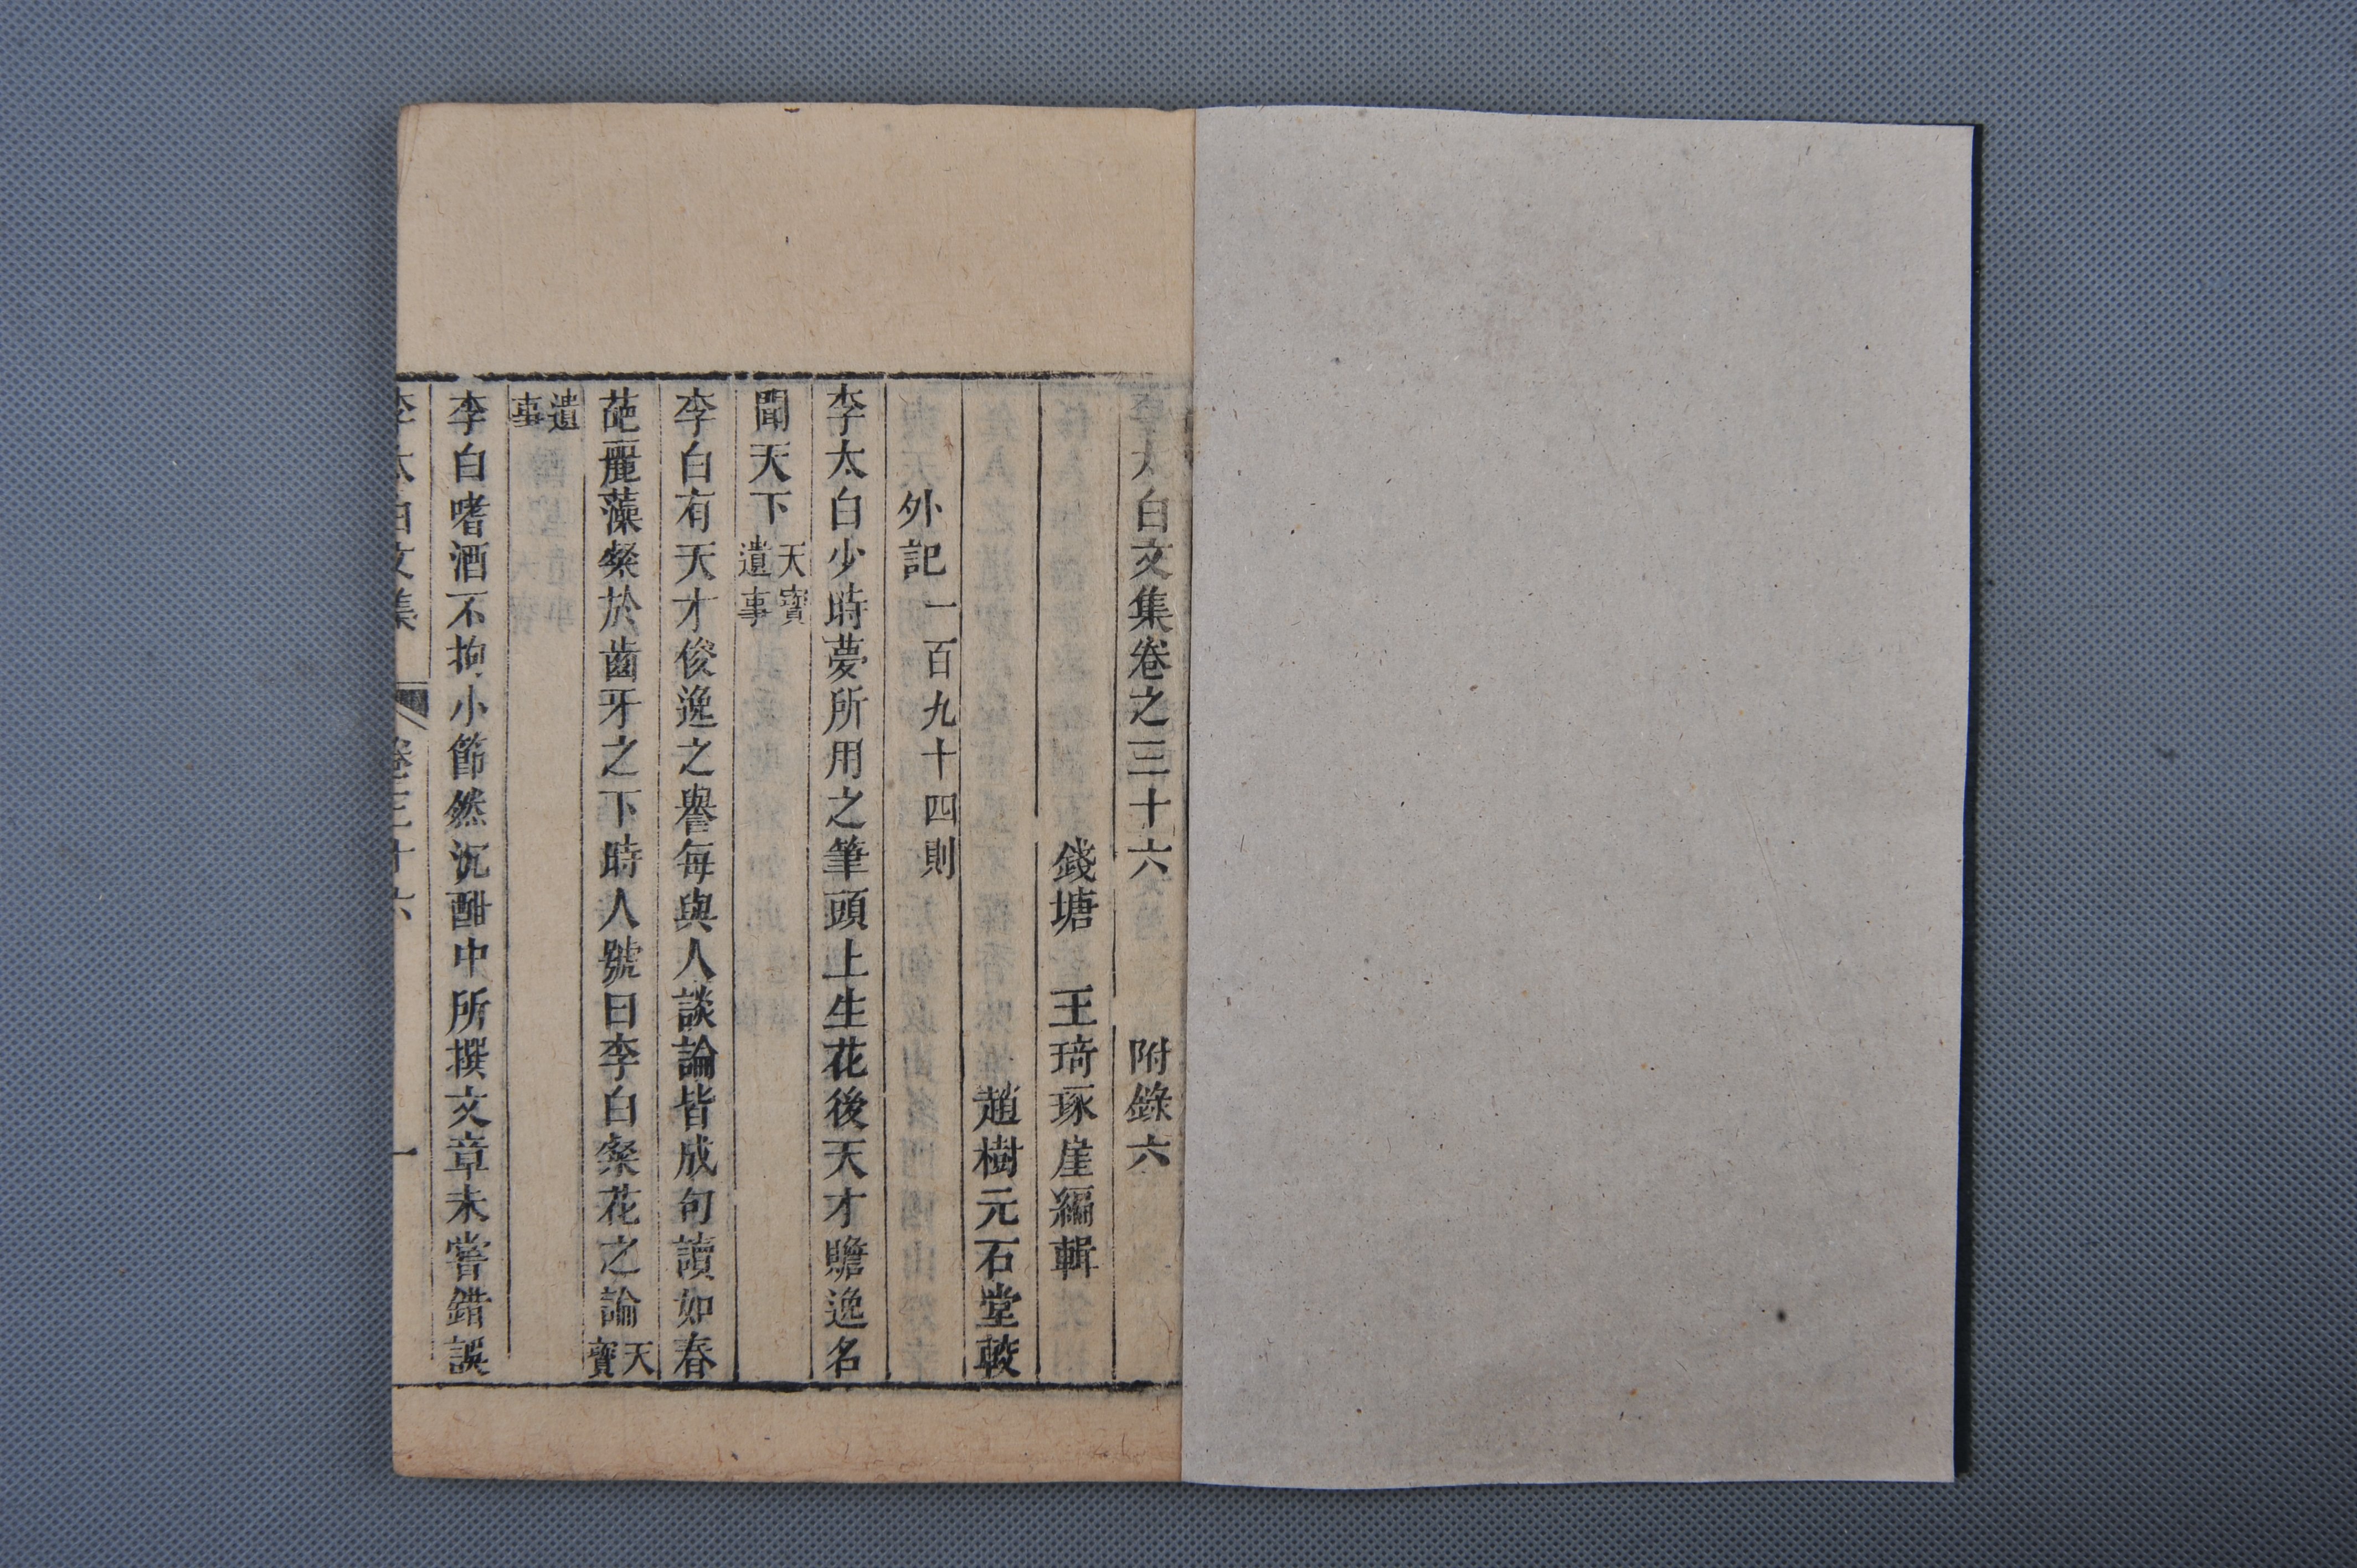 李太白文集卷之三十六　附錄六
錢塘　王琦琢崖編輯
趙樹元石堂較
外記一百九十四則
李太白少時夢所用之筆頭上生花後天才贍逸名
聞天下天寶遺事
李白有天才俊逸之譽每與人談論皆成句讀如春
葩麗藻粲於齒牙之下時人號曰李白粲花之論天寶
遺事
李白嗜酒不拘小節然沉酣中所撰文章未嘗錯誤
李太白文集　卷三十六　一